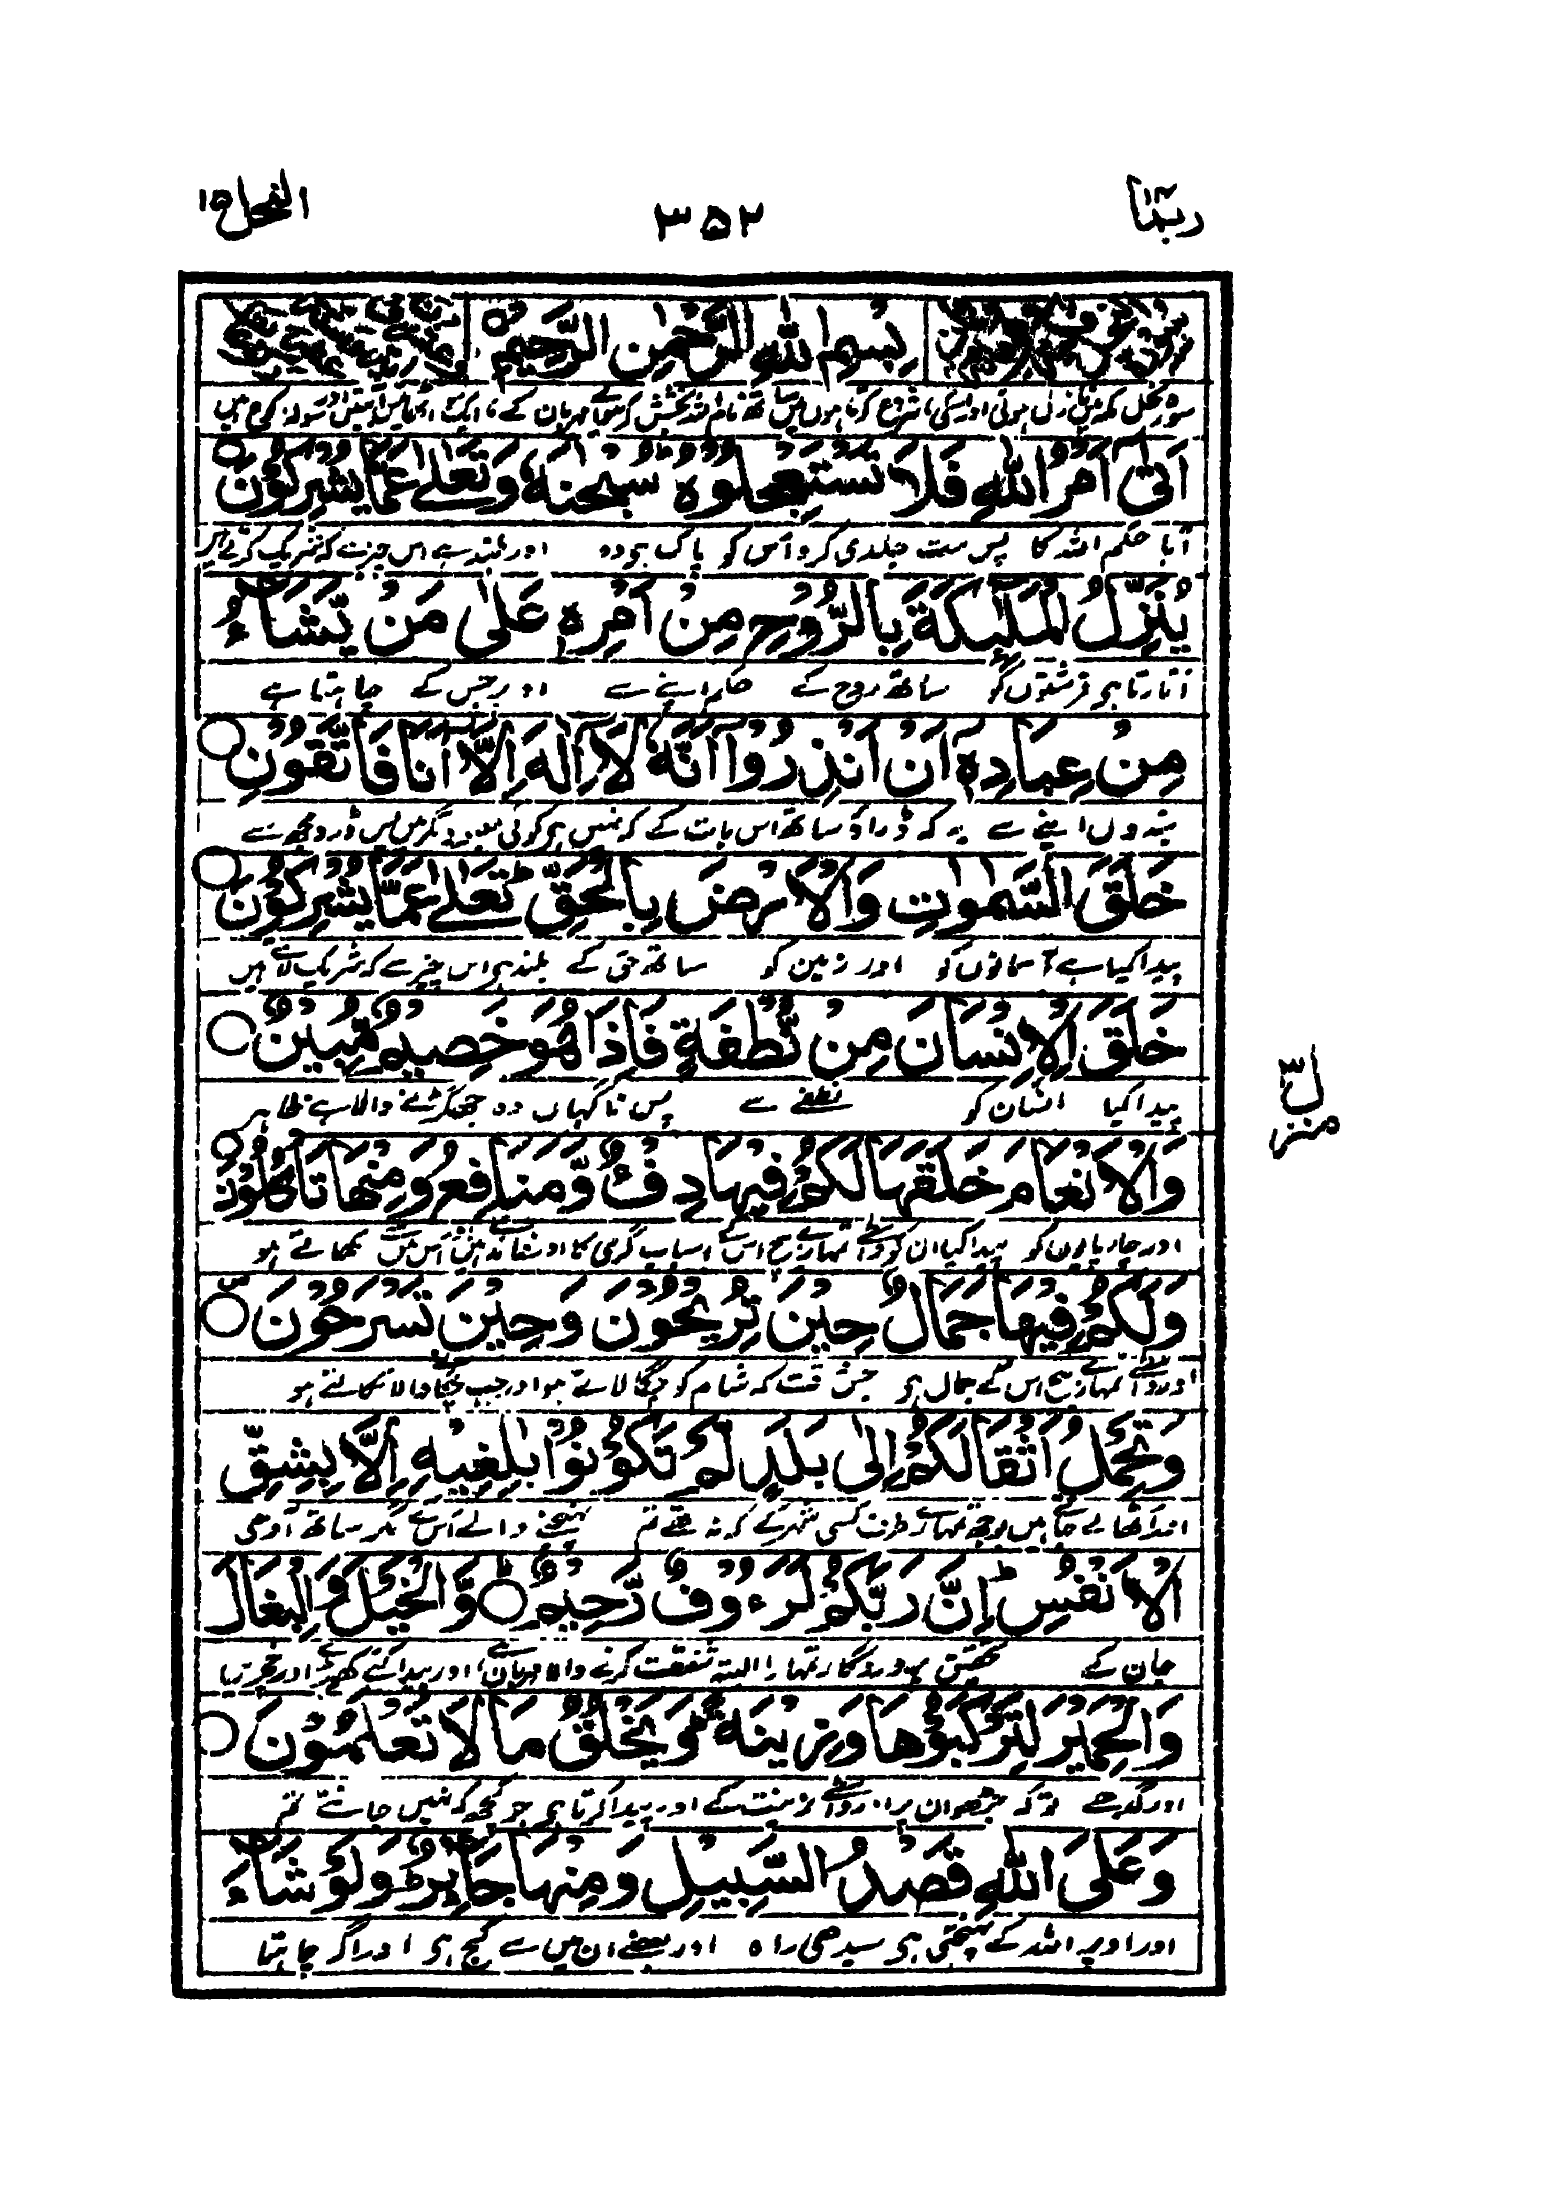 ربما ۱۴ ۳۵۲ النحل ۱۶
بِسْمِ اللهِ الرَّحْمٰنِ الرَّحِيْمِ
اَتٰۤى اَمْرُ اللهِ فَلَا تَسْتَعْجِلُوْهُ سُبْحٰنَهٗ وَتَعٰلٰى عَمَّا يُشْرِكُوْنَ
آیا حکم اللہ کا پس مت جلدی کرو اس کو پاک ہی وہ اور بلند ہے اس چیز سے کہ شریک کرتے ہیں
يُنَزِّلُ الْمَلٰٓئِكَةَ بِالرُّوْحِ مِنْ اَمْرِهٖ عَلٰى مَنْ يَّشَآءُ
اتارتا ہی فرشتوں کو ساتھ روح کے حکم اپنے سے اوپر جس کے چاہتا ہے
مِنْ عِبَادِهٖۤ اَنْ اَنْذِرُوْۤا اَنَّهٗ لَاۤ اِلٰهَ اِلَّاۤ اَنَا فَاتَّقُوْنِ
بندوں اپنے سے یہ کہ ڈراؤ ساتھ اس بات کے کہ نہیں ہی کوئی معبود مگر میں پس ڈرو مجھ سے
خَلَقَ السَّمٰوٰتِ وَالْاَرْضَ بِالْحَقِّ تَعٰلٰى عَمَّا يُشْرِكُوْنَ
پیدا کیا ہے آسمانوں کو اور زمین کو ساتھ حق کے بلند ہی اس چیز سے کہ شریک لاتے ہیں
خَلَقَ الْاِنْسَانَ مِنْ نُّطْفَةٍ فَاِذَا هُوَ خَصِيْمٌ مُّبِيْنٌ
پیدا کیا انسان کو نطفے سے پس ناگہاں وہ جھگڑنے والا ہے ظاہر
وَالْاَنْعَامَ خَلَقَهَا لَكُمْ فِيْهَا دِفْءٌ وَّمَنَافِعُ وَمِنْهَا تَاْكُلُوْنَ
اور چارپایوں کو پیدا کیا ان کو واسطے تمہارے بیچ اس کے اسباب گرمی کا اور فائدے ہیں اور اس میں سے کھاتے ہو
وَلَكُمْ فِيْهَا جَمَالٌ حِيْنَ تُرِيْحُوْنَ وَحِيْنَ تَسْرَحُوْنَ
اور واسطے تمہارے بیچ اس کے جمال ہی جس وقت کہ شام کو چرا کر لاتے ہو اور جب
منزل ۳
وَتَحْمِلُ اَثْقَالَكُمْ اِلٰى بَلَدٍ لَّمْ تَكُوْنُوْا بٰلِغِيْهِ اِلَّا بِشِقِّ
اور اٹھا لے جاتے ہیں بوجھ تمہارے طرف کسی شہر کے کہ نہ تھے تم پہنچنے والے اس کے مگر ساتھ آدھی
الْاَنْفُسِ اِنَّ رَبَّكُمْ لَرَءُوْفٌ رَّحِيْمٌ وَّالْخَيْلَ وَالْبِغَالَ
جان کے تحقیق پروردگار تمہارا البتہ شفقت کرنے والا مہربان ہے اور پیدا کئے گھوڑے اور خچریں
وَالْحَمِيْرَ لِتَرْكَبُوْهَا وَزِيْنَةً وَيَخْلُقُ مَا لَا تَعْلَمُوْنَ
اور گدھے تو کہ چڑھو ان پر اور واسطے زینت کے اور پیدا کرتا ہی جو کچھ کہ نہیں جانتے تم
وَعَلَى اللهِ قَصْدُ السَّبِيْلِ وَمِنْهَا جَآئِرٌ وَلَوْ شَآءَ
اور اوپر اللہ کے پہنچتی ہی سیدھی راہ اور بعضے ان میں سے کج ہی اور اگر چاہتا